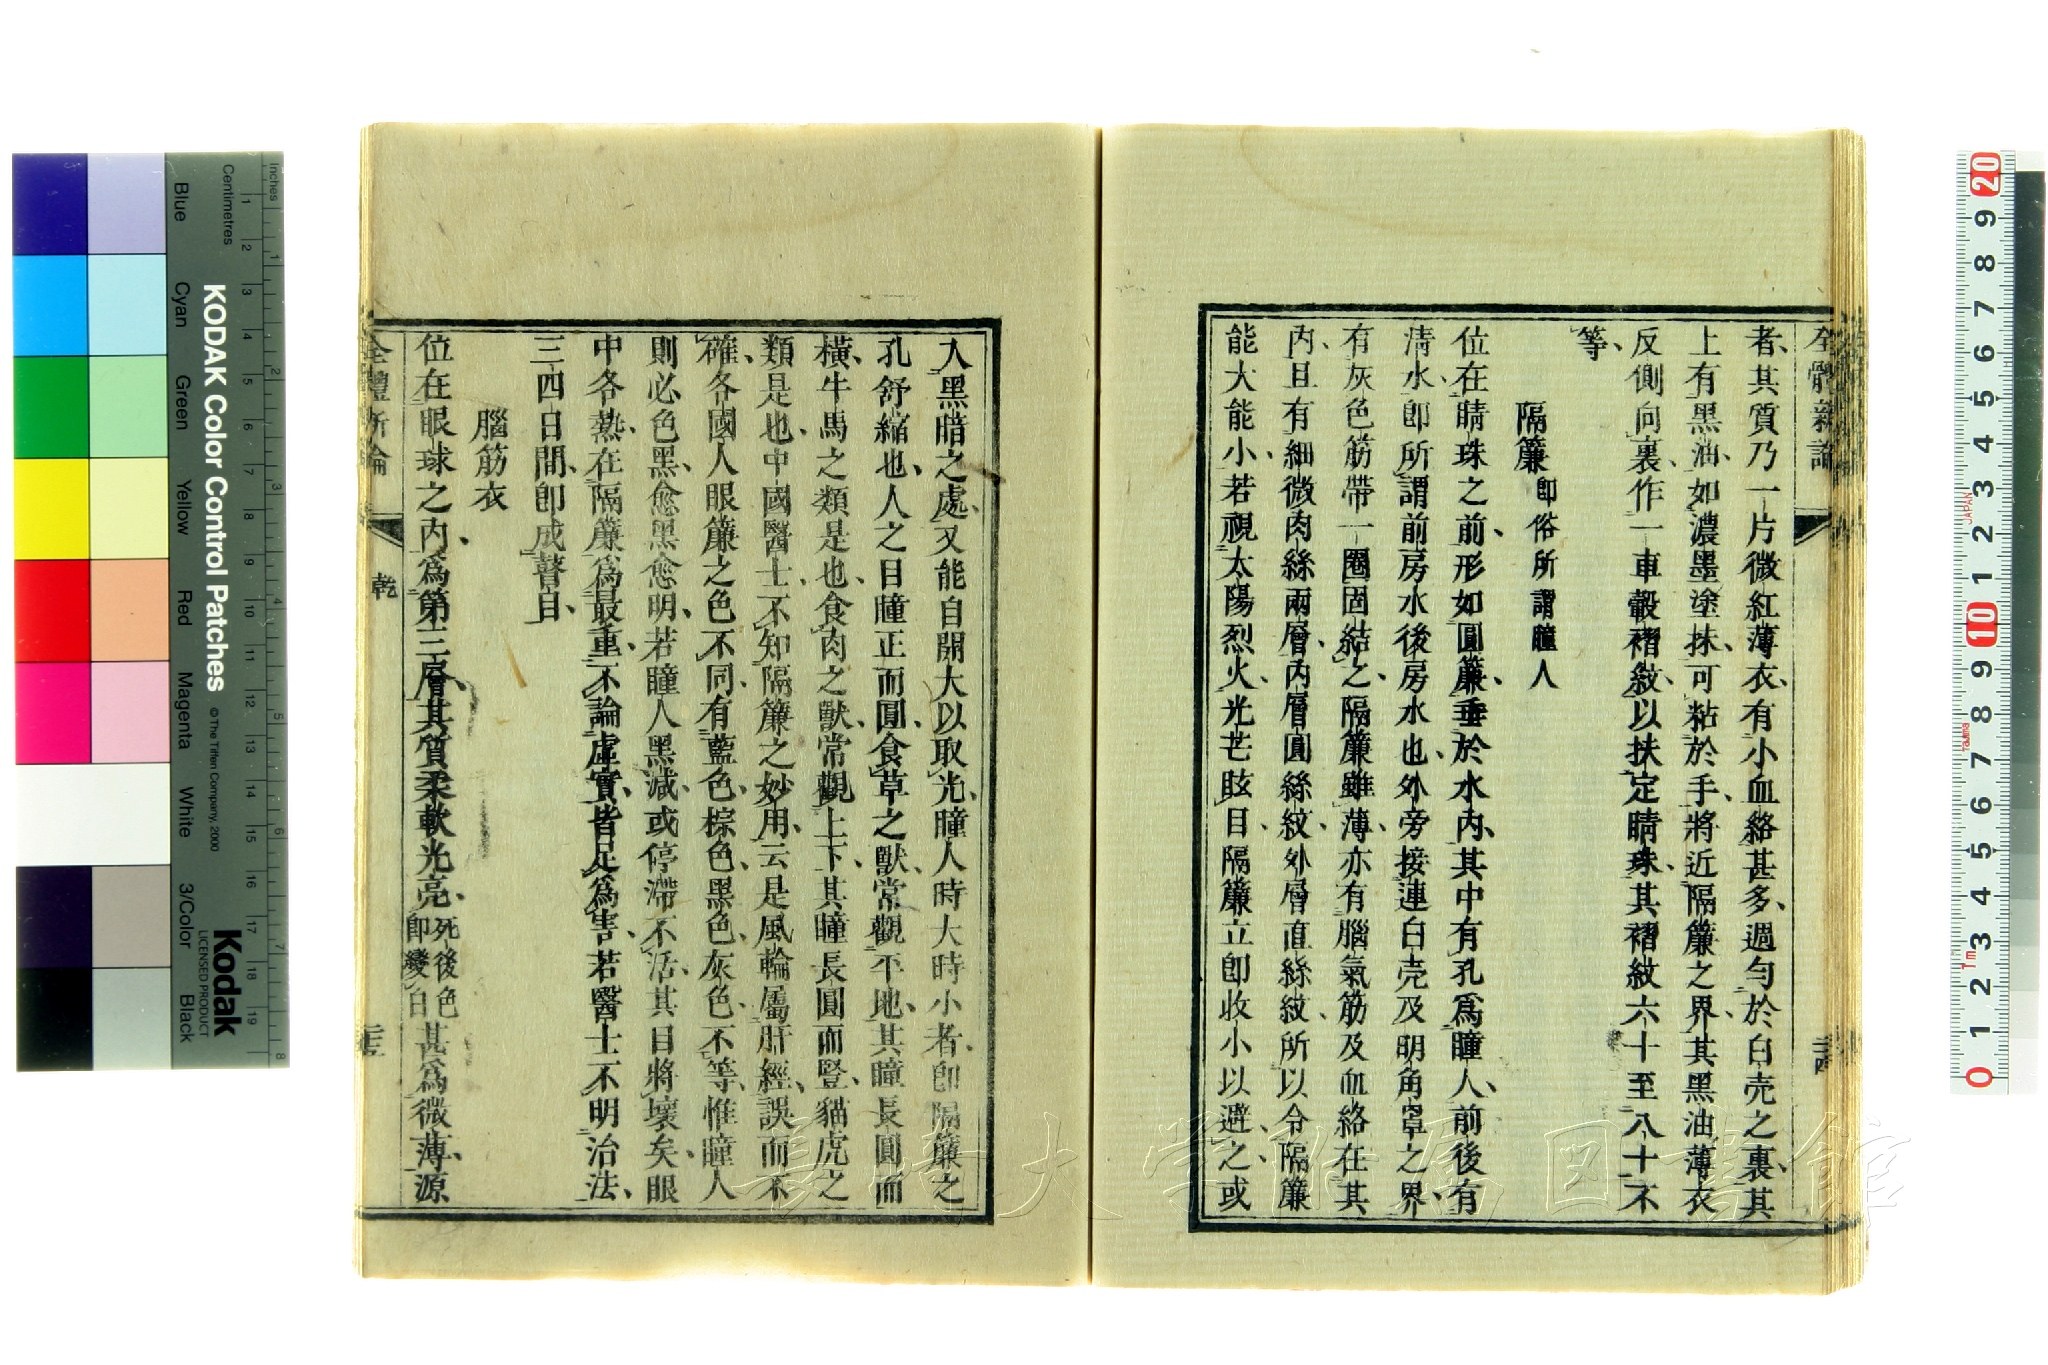 全體新論
者、其質乃一片微紅薄衣、有小血絡甚多、週勻於白壳之裏、其
上有黑油、如濃墨塗抹、可粘於手、將近隔簾之界、其黑油薄衣
反側向裏、作一車轂褶紋、以扶定睛珠、其褶紋六十至八十不
等、
隔簾 卽俗所謂瞳人
位在睛珠之前、形如圓簾、垂於水內、其中有孔爲瞳人、前後有
清水、卽所謂前房水後房水也、外旁接連白壳及明角罩之界、
有灰色筋帶一圈固結之、隔簾雖薄、亦有腦氣筋及血絡在其
內、且有細微肉絲兩層、內層圓絲紋、外層直絲紋、所以令隔簾
能大能小、若視太陽烈火、光芒眩目、隔簾立卽收小以避之、或
入黑暗之處、又能自開大以取光、瞳人時大時小者、卽隔簾之
孔舒縮也、人之目瞳正而圓、食草之獸、常觀平地、其瞳長圓而
橫、牛馬之類是也、食肉之獸、常觀上下、其瞳長圓而豎、貓虎之
類是也、中國醫士、不知隔簾之妙用、云是風輪屬肝經、誤而不
確、各國人眼簾之色不同、有藍色、棕色、黑色、灰色、不等、惟瞳人
則必色黑、愈黑愈明、若瞳人黑減、或停滯不活、其目將壞矣、眼
中各熱、在隔簾爲最重、不論虛實、皆足爲害、若醫士不明治法、
三四日間、卽成瞽目、
腦筋衣
位在眼球之內、爲第三層、其質柔軟光亮、死後色卽變白 甚爲微薄、源
全體新論
乾
二十五
KODAK Color Control Patches
© The Tiffen Company, 2000
Kodak
LICENSED PRODUCT
Inches
Centimetres
Blue
Cyan
Green
Yellow
Red
Magenta
White
3/Color
Black
長崎大学附属図書館